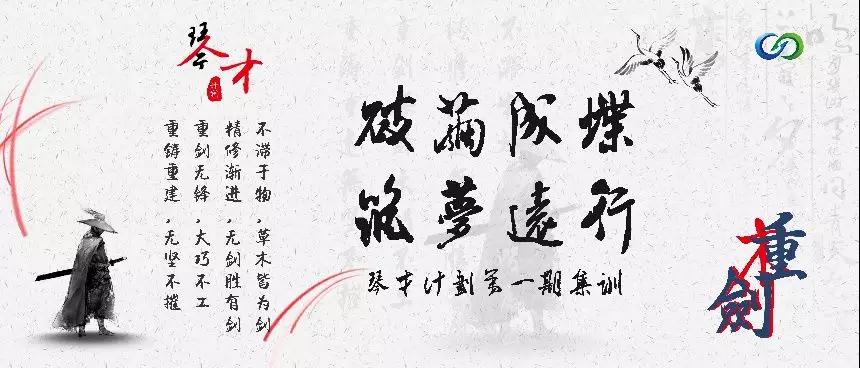 琴才
计划
不滞于物,草木皆为剑
精修渐进,无剑胜有剑
重剑无锋,大巧不工
重铸重建,无坚不摧
破繭成蝶
筑夢遠行
琴才计划第一期集训
重劍